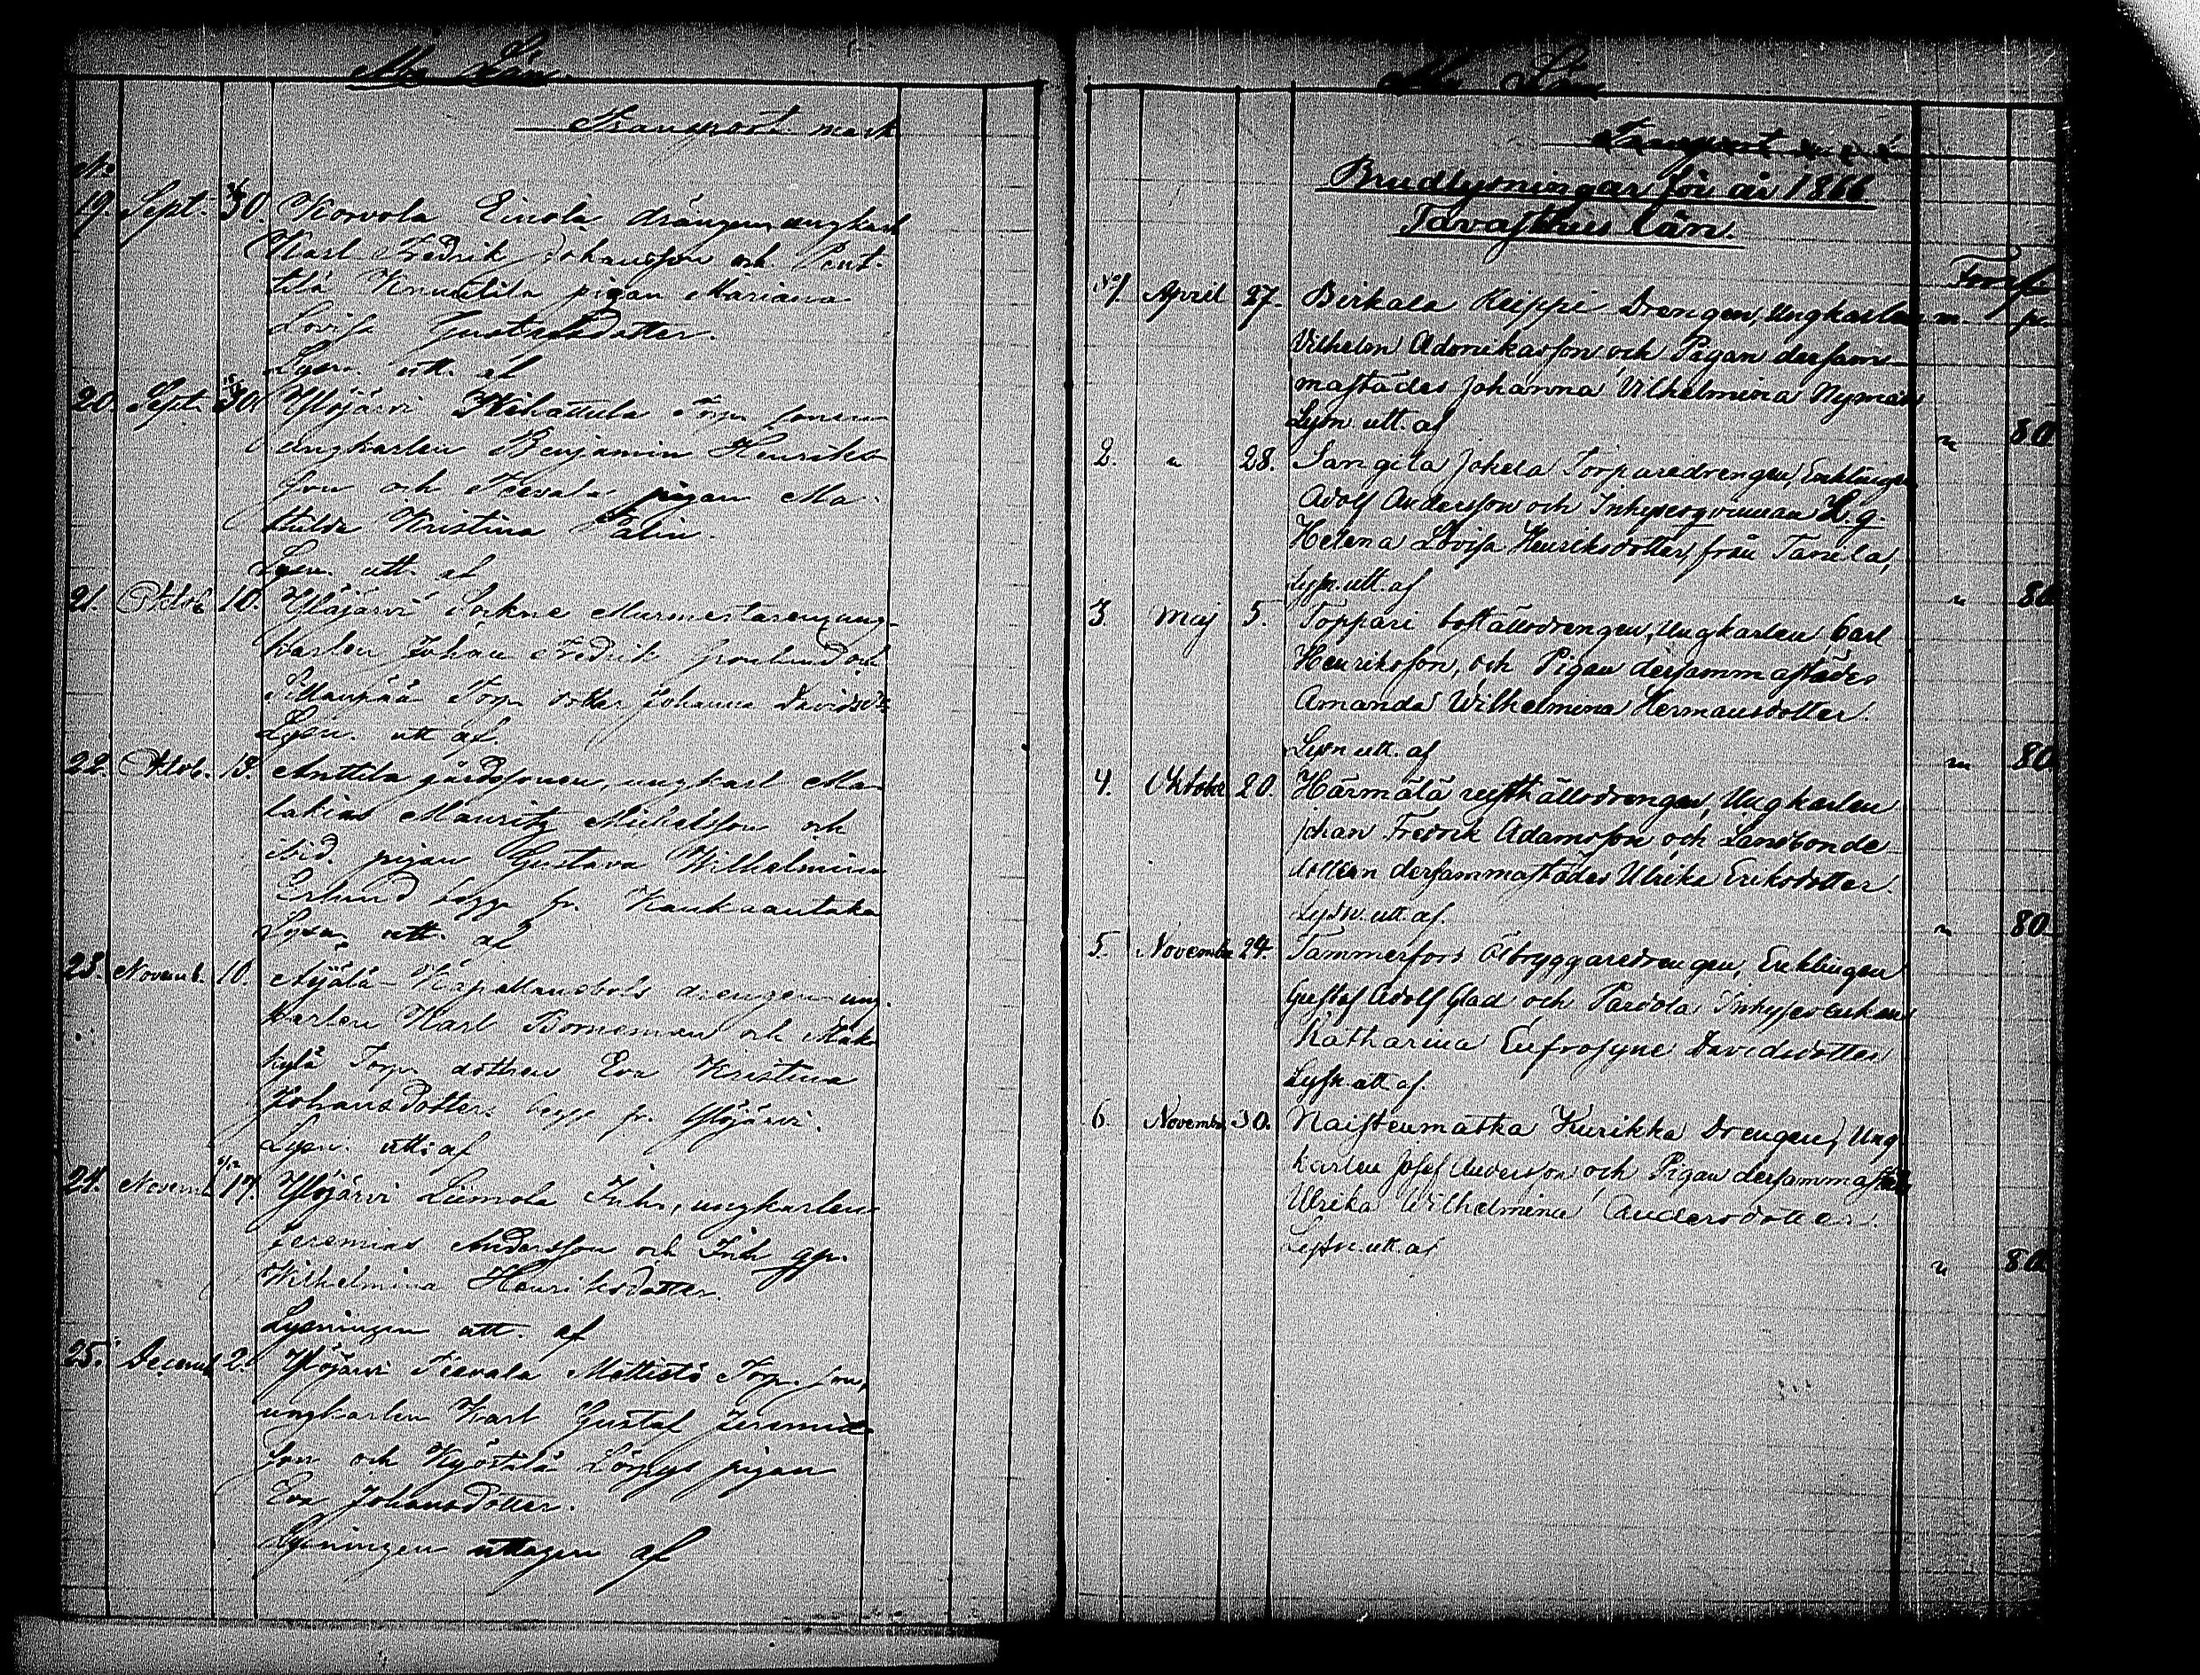 Åbo Län.
Transport mark
No
19. Sept. 30. Korvola Einola drängen, ungkarl
Karl Fredrik Johansson och Pent-
tilä Knuutila pigan Mariana
Lovisa Gustafsdotter.
Lysn. utt. af
20. Sept. 30. Ylöjärvi Vihattula Torp. sonen
ungkarlen Benjamin Henriks-
son och Teevala pigan Ma-
thilda Kristina Palin.
Lysn. utt. af
21. Oktob. 10. Ylöjärvi Sockne Murmestaren, ung-
karlen Johan Fredrik Grönlund och
Sillanpää Torp. dotter Johanna Davidsdr
Lysn. utt af.
22. Oktob. 13. Anttila gårdssonen, ungkarl Ma-
lakias Mauritz Mickelsson och
ibid. pigan Gustava Wilhelmina
Erlund begge fr.
Lysn. utt. af
23. Novemb. 10. Äijälä Kapellansbols drengen ung-
karlen Karl Borneman och Mäk-
kylä Torp. dottren Eva Kristina
Johansdotter begge fr. Ylöjärvi.
Lysn. utt. af
24. Novemb 17. Ylöjärvi Liimola Inh., ungkarlen
Jeremias Andersson och Inh. qv.
Wilhelmina Henriksdotter.
Lysningen utt. af
25. Decemb 2. Ylöjärvi Teevala Mettistö Torp. son,
ungkarlen Karl Gustaf Jeremias-
son och Kyöstilä Löppys pigan
Eva Johansdotter.
Lysningen uttagen af
Åbo Län
Transport
Brudlysningar för år 1866
Tavasthus län.
No 1 April 27. Birkala Kuppi Drengen, Ungkarlen m. p.
Vilhelm Adamiksson och Pigan dersam-
mastädes Johanna Vilhelmina Nyman
Lysn utt. af " 80
2. " 28. Sangila Jokela Torparedrengen, Enklingen
Adolf Andersson och Inhysesqvinnan L. q.
Helena Lovisa Henriksdotter, från Tanila,
Lysn. utt. af " 80
3 Maj 5. Toppari boställsdrengen, Ungkarlen Carl
Henriksson, och Pigan dersammastädes
Amanda Wilhelmina Hermansdotter.
Lysn utt. af " 80
4. Oktober 20. Härmälä rusthållsdrengen, Ungkarlen
Johan Fredrik Adamsson och Landbonde
dottern dersammastädes Ulrika Eriksdotter.
Lysn. utt. af. " 80
5. November 24. Tammerfors Ölbryggaredrengen, Enklingen
Gustaf Adolf Glad och Pardola Inhysesenkan
Katharina Eufrosyne Davidsdotter
Lysn. utt. af.
6. November 30. Naistenmatka Kurikka Drengen, Ung
karlen Josef Andersson och Pigan dersammastädes
Ulrika Wilhelmina Andersdotter.
Lysn. utt. af " 80